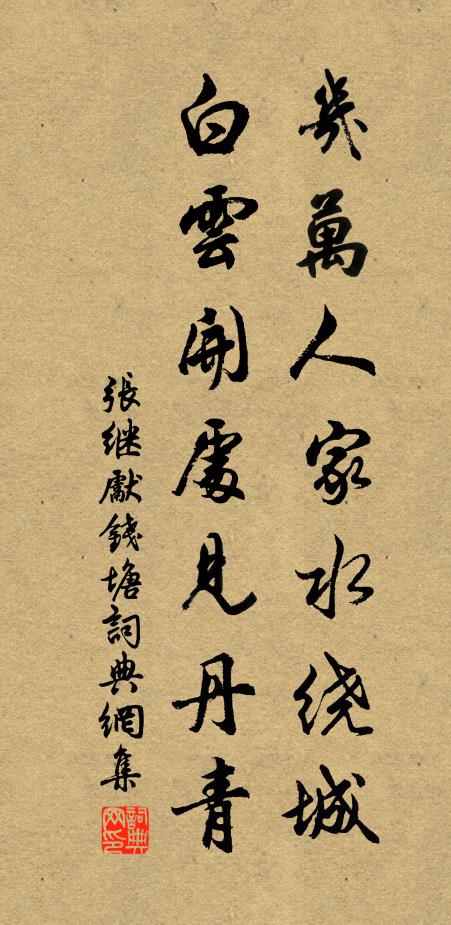 幾萬人家水绕城
白雲開處見丹青
張继獻錢塘詞典網集
詞典网印